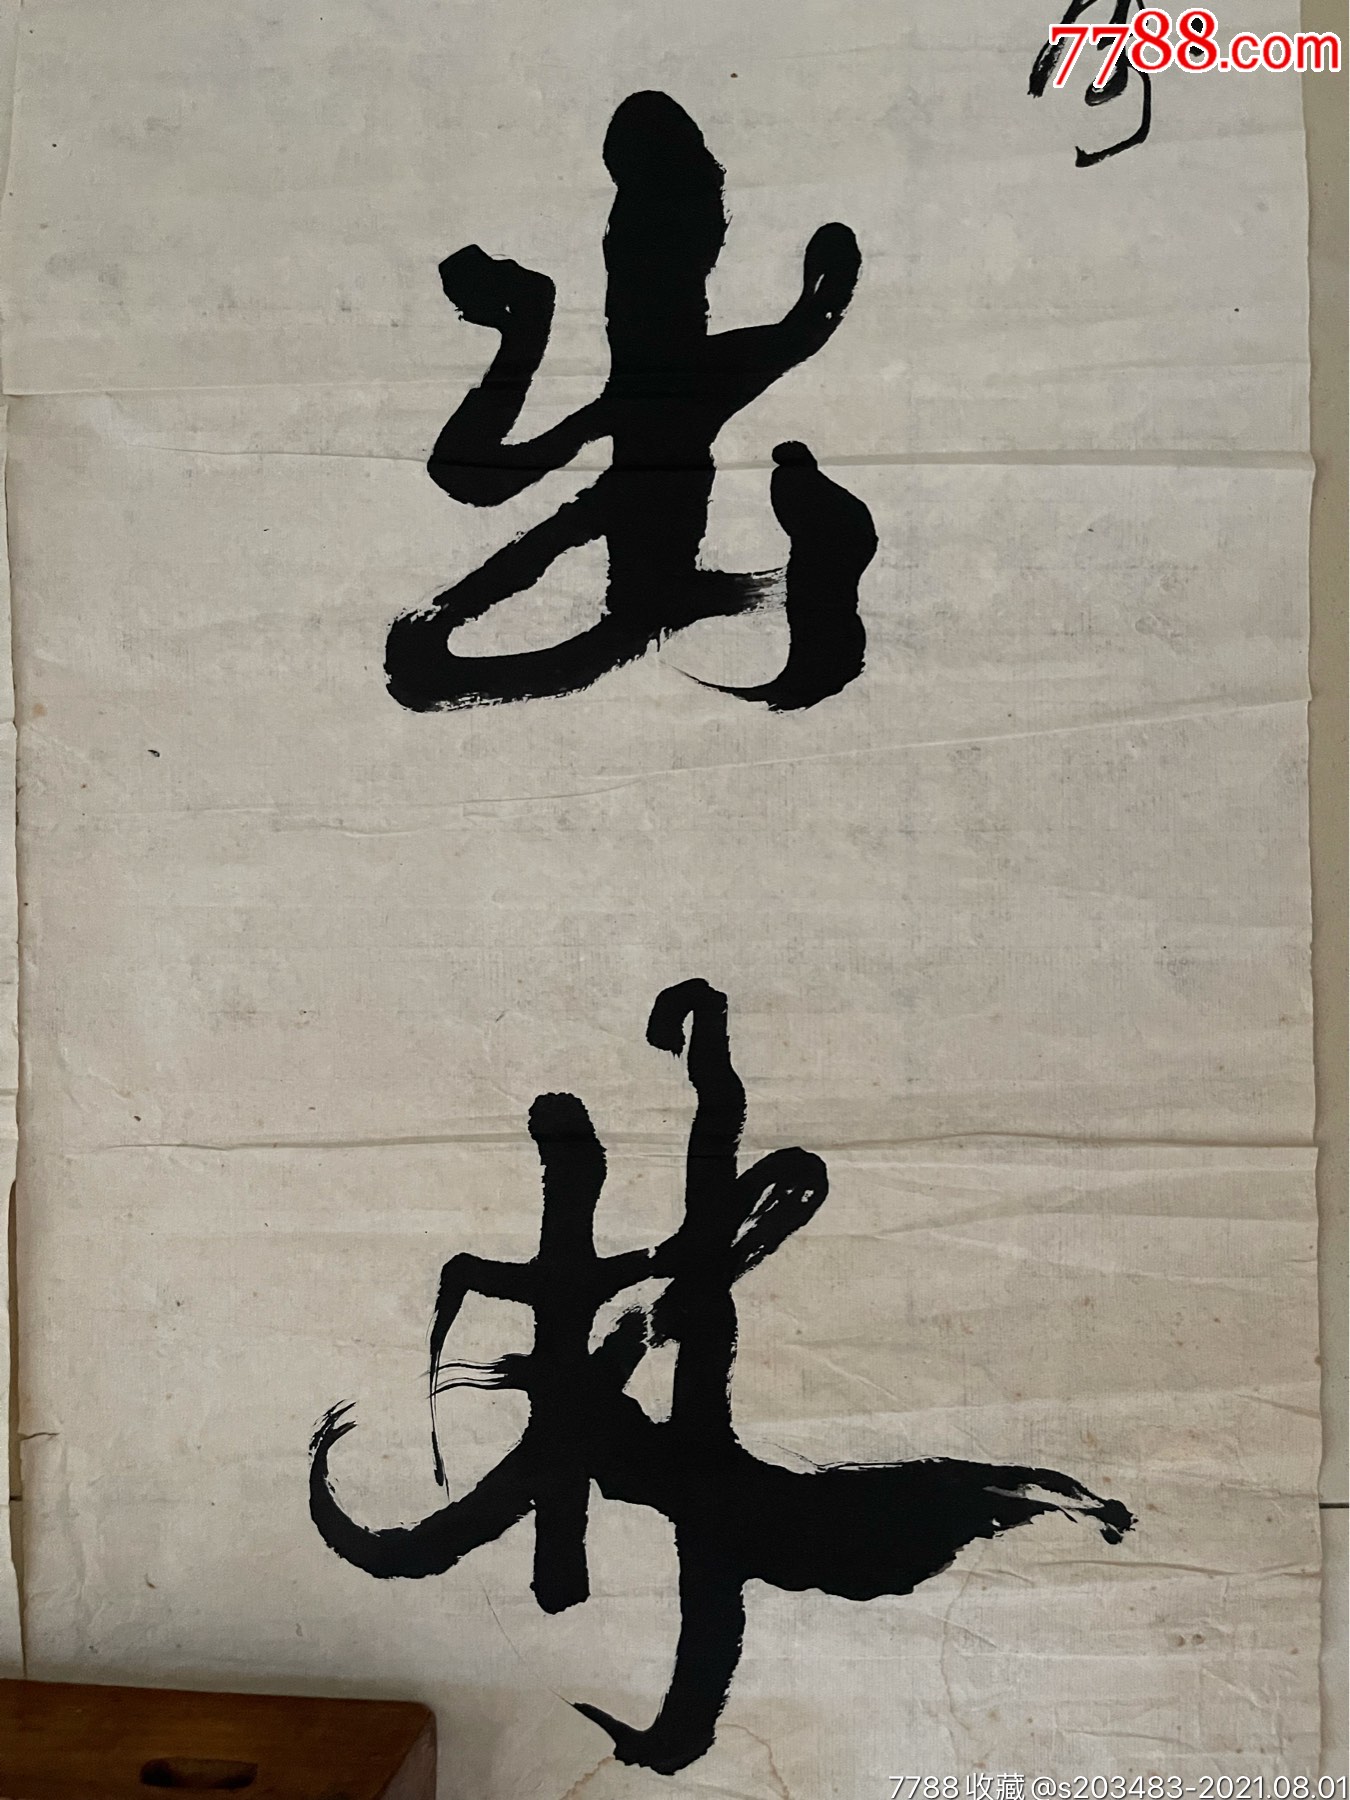 7788.com
出
林
7788收藏@s203483-2021.08.01